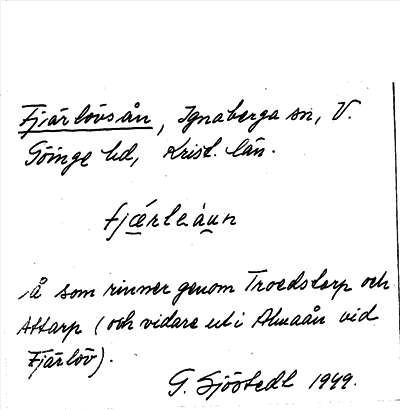 Fjärlövsån, Ignaberga sn, V.
Göinge hd, Krist. län.
fjǽrleàun
Å som rinner genom Troedstorp och
Attarp (och vidare ut i Almaån vid
Fjärlöv).
G. Sjöstedt 1949.